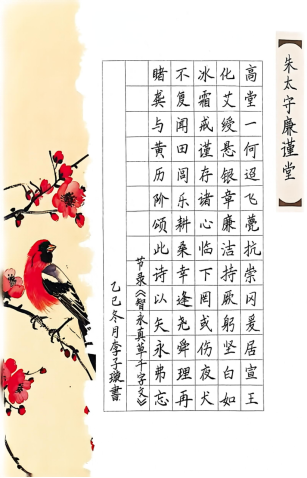 朱太守廉谨堂
高堂一何迢飞甍抗崇冈爰居宣王
化艾绶悬银章廉洁持厥躬坚白如
冰霜戒谨存诸心临下罔或伤夜犬
不复闻田闾乐耕桑幸逢尧舜理再
睹龚与黄历阶颂此诗以矢永弗忘
节录《智永真草千字文》
乙巳冬月李子璇書